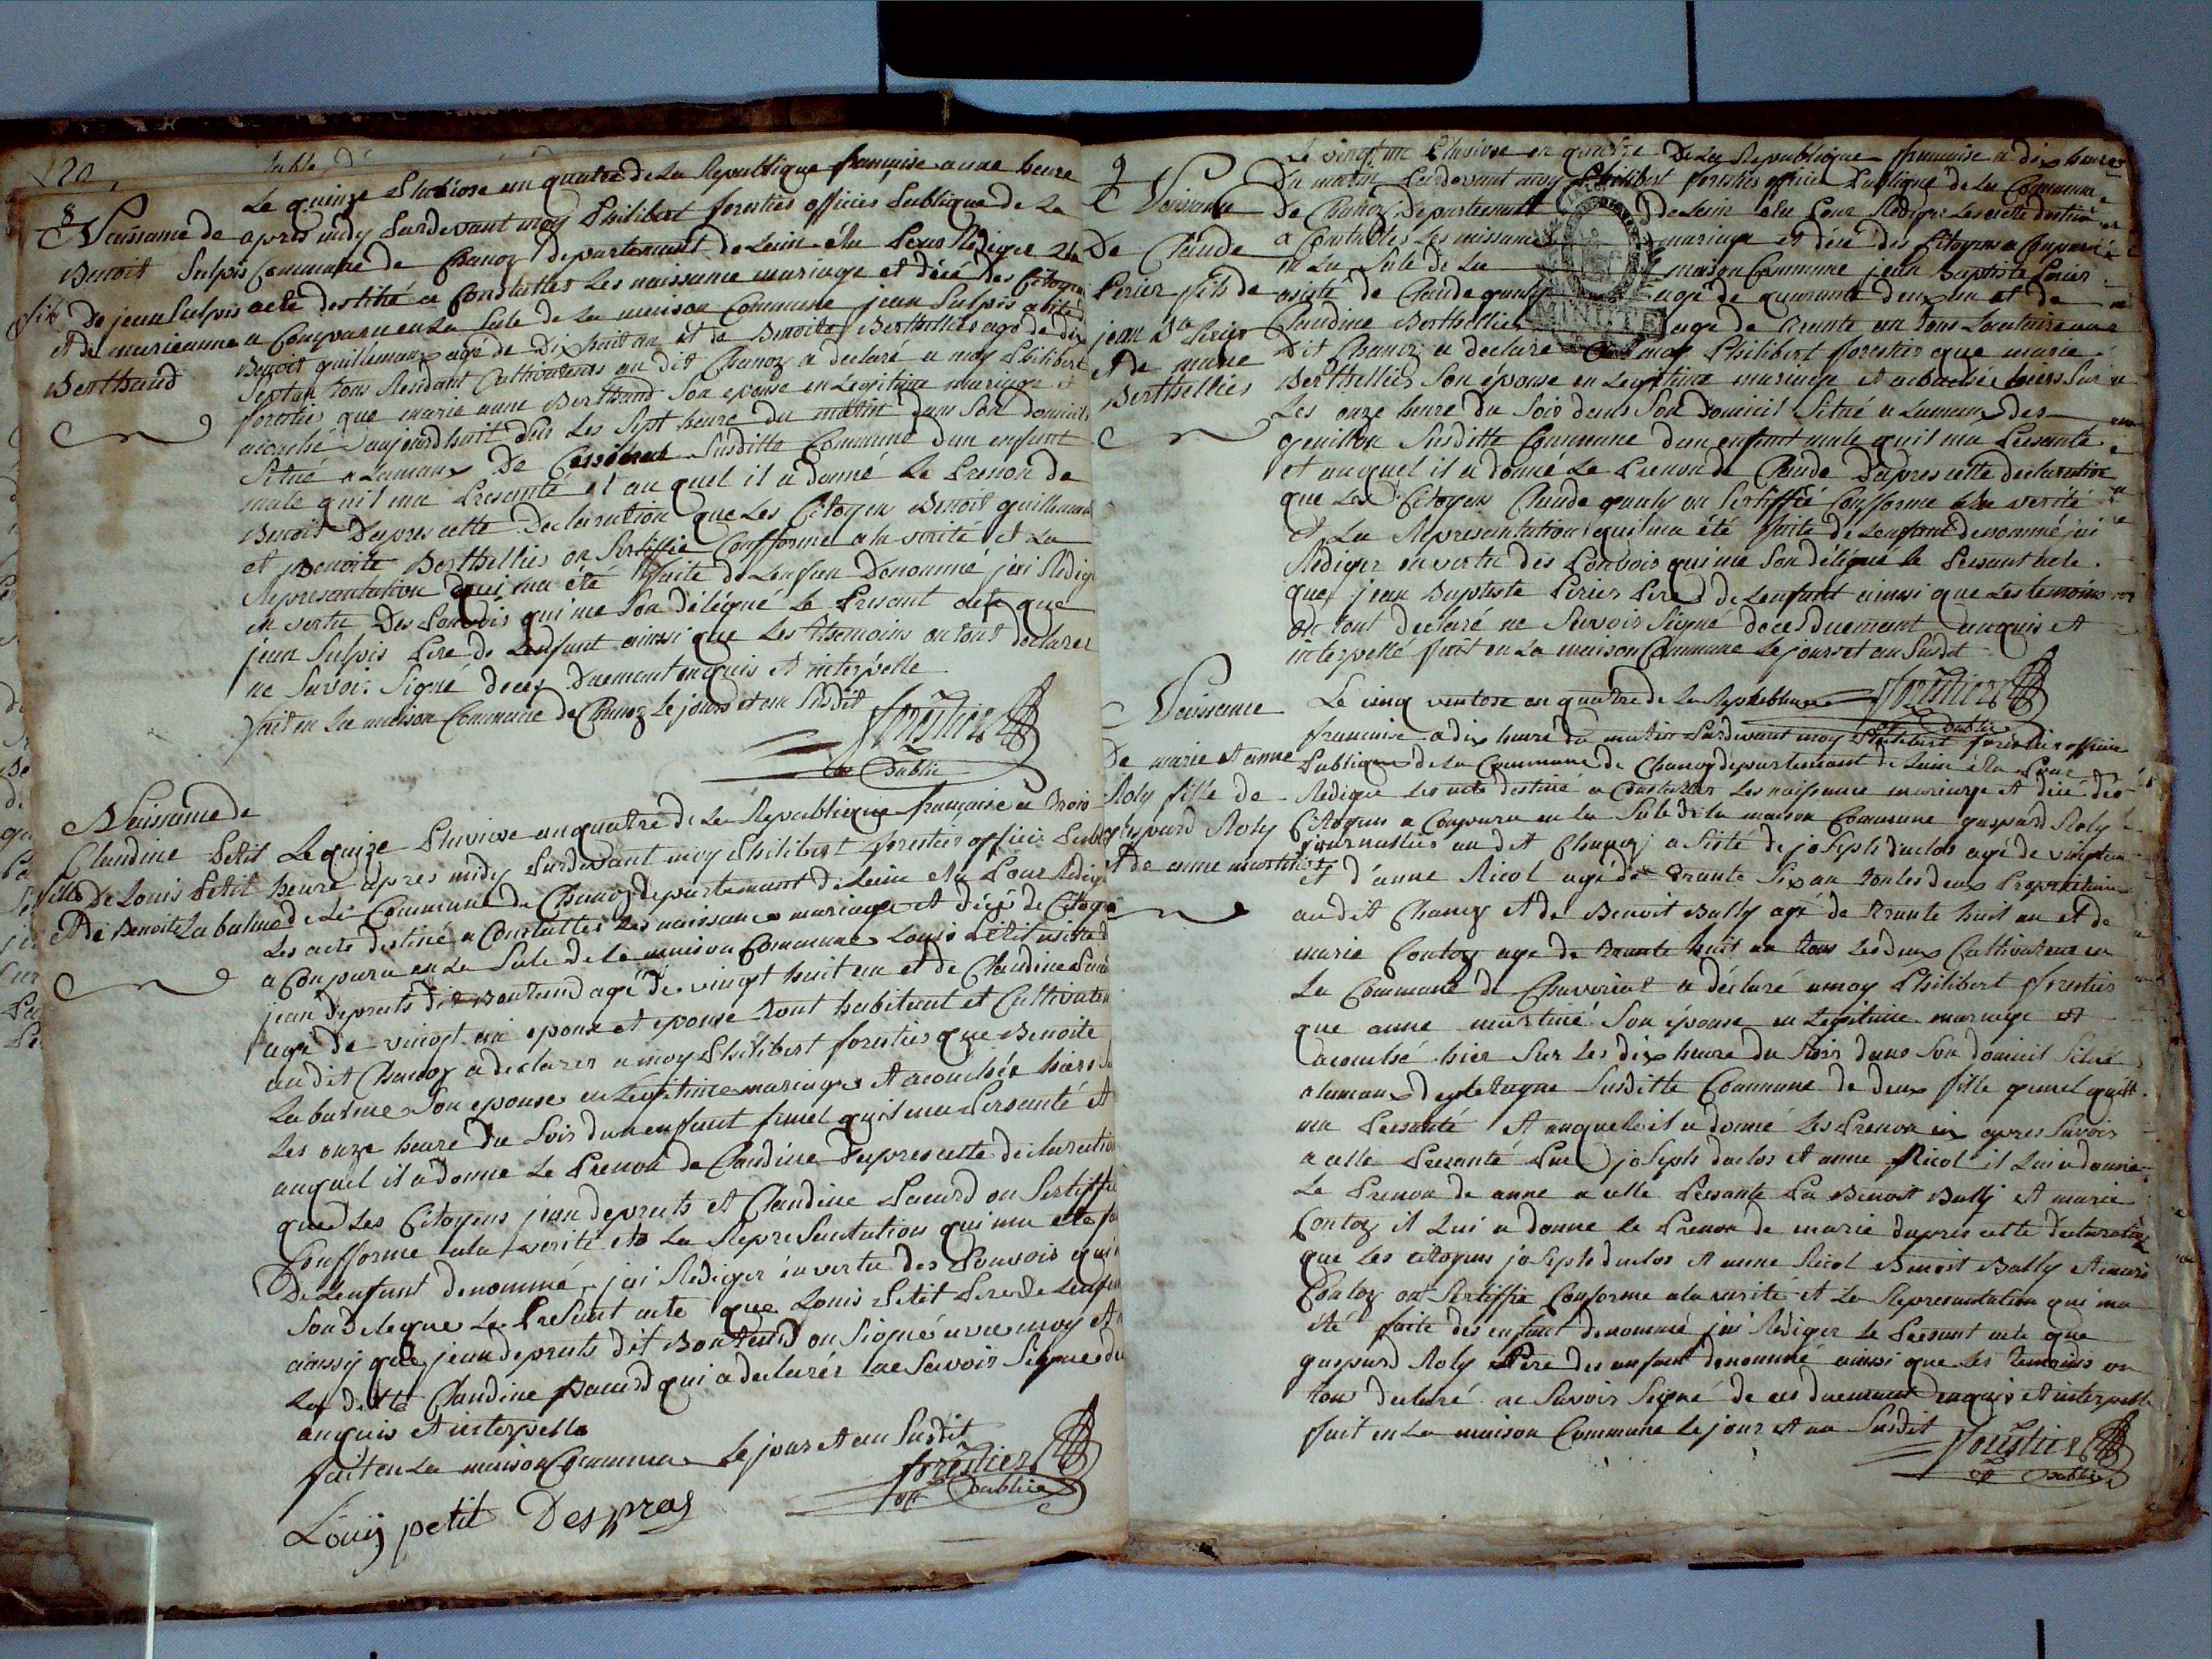 120
8
Naissance de
Benoit Sulpis
fils De jean Sulpis
et de marieanne
Berthaud
Le quinze Pluviose an quatre de La Republique française a une heure
apres midy Pardevant moy Philibert forestier officier Publique de La
Commune de Chanoz departement de Lain élu Pour Rediger Les
acte destiné a Constatter Les naissance mariage et décé des Citoyens
a Comparu en La Sale de La maison Commune jean Sulpis asisté de
Benoit guillemaux agé de Dixhuit an et de Benoite Berthellier agé de dix
Sept an tous Residant Cultivateurs au dit Chanoz a declaré a moy Philibert
forestier que marie anne Berthaud Son epouse en Legitime mariage et
acouché aujourdhuit Sur Les Sept heure du matin dans Son domicile
Situé a Lamaux De Susditte Commune dun enfant
male quil ma Presanté et au quel il a donné Le Prenon de
Benoit Dapres cette Declaration que Les Citoyen Benoit guillemaux
et Benoite Berthellier on Sertiffié Confforme a la verité et La
Represantation qui ma été faite de Lenfan Denommé jai Rediger
en vertu Des Pouvois qui me Son délégué Le Presant acte que
jean Sulpis Pere de Lenfant ainsi que Les temoins on tout declarer
ne Savoir Signé decey Duement enquis et interpellé
fait en La maison Commune de Chanoz Le jours et an Susdit
forestier
off Public
Naissance de
Claudine Petit
fille De Louis Petit
et de Benoite Labalme
Le quinze Pluviose an quatre de La Republique française a trois
heure apres midy Pardevant moy Philibert forestier officier Publique
de La Commune de Chanoz departement de Lain élu Pour Rediger
Les acte destiné a Constatter Les naissance mariage et décé de Citoyen
a Comparu en La Sale de la maison Commune Louis Petit asisté de
jean deprats dit Bontend agé de vingt huit an et de Claudine Pacard
agé de vingt epoux et epouse tout habitant et Cultivateur
au dit Chanoz a declarer a moy Philibert forestier que Benoite
Labalme Son epouse en Legitime mariage et acouchée hiers Sur
Les onze heure du Soir dun enfant femel quil ma Persanté et
auquel il a donne Le Prenon de Claudine Dapres cette declaration
que Les Citoyens jean deprats et Claudine Pacard on Sertiffié
Confforme ala verité et La Represantation qui ma eté faite
De Lenfant denommé jai Rediger en vertu des Pouvois qui me
Son delegue Le Presant acte que Louis Petit Pere de Lenfant
ainsy que jean deprats dit Bontend on Signé avec moy et non
La ditte Claudine Pacard qui a declarér ne Savoir Signe de
enquis et interpelle
fait en La maison Commune Le jour et an Susdit
forestier
off Publice
Louis petit Despras
9
Naissance
De Claude
Perier fils de
jean Bte Perier
et de marie
Berthellier
Le vingt un Pluviose an quatre De La Republique francaise a dix heure
Du matin Pardevant moy Philibert forestier officier Publique de La Commune
De Chanoz Departement de Lain elu Pour Rediger Les acte destiné
a Constatter Les naissance mariage et décé des Citoyens a Comparu
en La Sale de La maison Commune jean Baptiste Perier
asisté de Claude gauly agé de quarante deux an et de
Claudine Berthellier agé de trante an tous
Dit Chanoz a declaré a moy Philibert forestier que marie
Berthellier Son épouse en Legitime mariage et acouchée hiers Sur
Les onze heure du Soir dans Son domicil Situé a Lamaux des
Susditte Commune dun enfant male quil ma Presanté
et auquel il a donné Le Prenon de Claude Dapres cette declaration
que Les Citoyens Claude gauly on Sertiffié Confforme a la verité
et La Represantation qui ma été faite de Lenfant denommé jai
Rediger en vertu des Pouvois qui me Son délégué le Presant acte
que jean Baptiste Perier Pere de Lenfant ainsi que Les temoins
on tout declaré ne Savoir Signé deces duement enquis et
interpellé fait en La maison Commune Le jours et an Susdit
MINUTE
forestier
off Public
Naissance
De marie et anne
Roly fille de
gaspard Roly
et de anne
Le cinq ventose an quatre de La Republique
francaise a dix heure du matin Pardevant moy Philibert forestier officier
Publique de La Commune de Chanoz departement de Lain élu Pour
Rediger Les acte destiné a Constatter Les naissance mariage et décé des
Citoyens a Comparu en la Sale de la maison Commune gaspard Roly
journallier au dit Chanoz a sisté de joseph duclos agé de vingt an
et d'anne Ricol agé de trante Six an tous les deux Proprietaire
au dit Chanoz et de Benoit Bally agé de trante huit an et de
marie Contoz age de trante huit an tous Les deux Cultivateur en
La Commune de Chaveriat a déclaré a moy Philibert forestier
que anne Son épouse en Legitime mariage et
acouché hier Sur Les dix heure du Soir dans Son domicil Situé
a Lamaux Susditte Commune de deux fille gemel quil
ma Persanté et auquele il a donné Les Prenon ci apres Savoir
a celle Presanté Par joseph duclos et anne Ricol il Lui a donné
Le Prenon de anne a celle Persante Par Benoit Bally et marie
Contoz il Lui a donne le Prenon de marie dapres cette declaration
que Les citoyens joseph duclos et anne Ricol Benoit Bally et marie
Contoz on Sertiffié Conforme a la verité et La Represantation qui ma
été faite des enfant denommé jai Rediger Le Presant acte que
gaspard Roly Pere des enfant denommé ainsi que Les temoins on
tous declaré ne Savoir Signé de ces duement enquis et interpellé
fait en La maison Commune Le jour et an Susdit
forestier
off Public